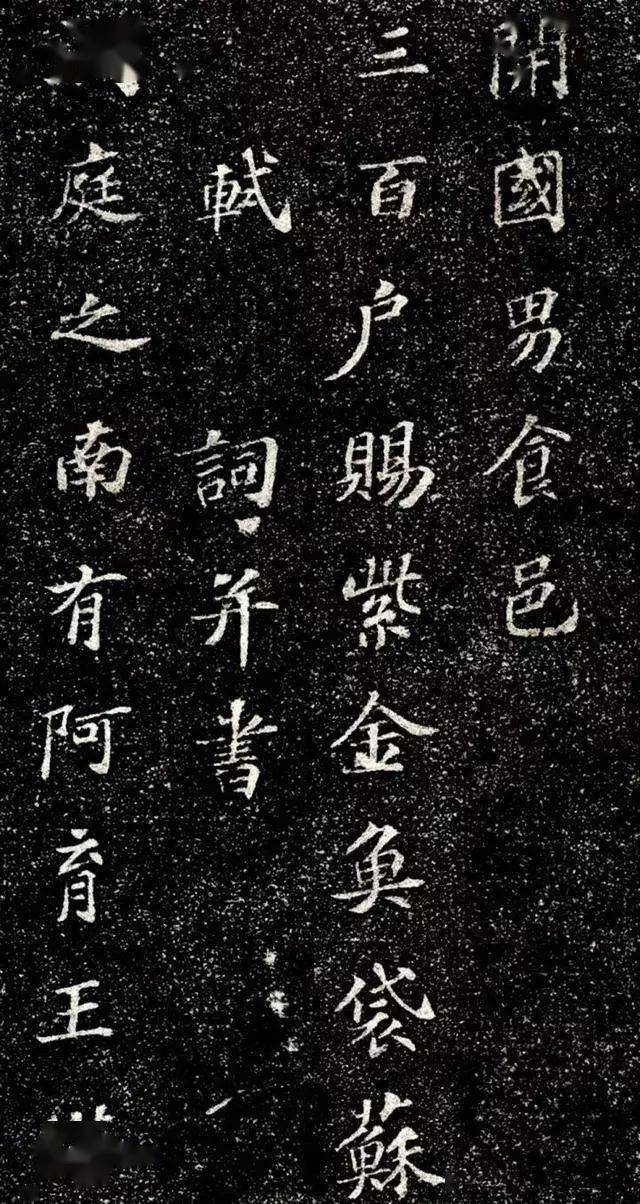 開國男食邑
三百户賜紫金魚袋蘇
軾 詞并書
庭之南有阿育王